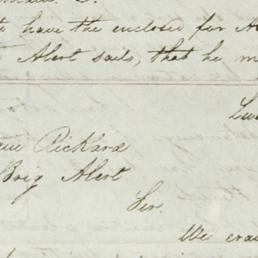 have the enclosed for
Alert sails, that he m
Rickard
Brig Alert
Sir.
We